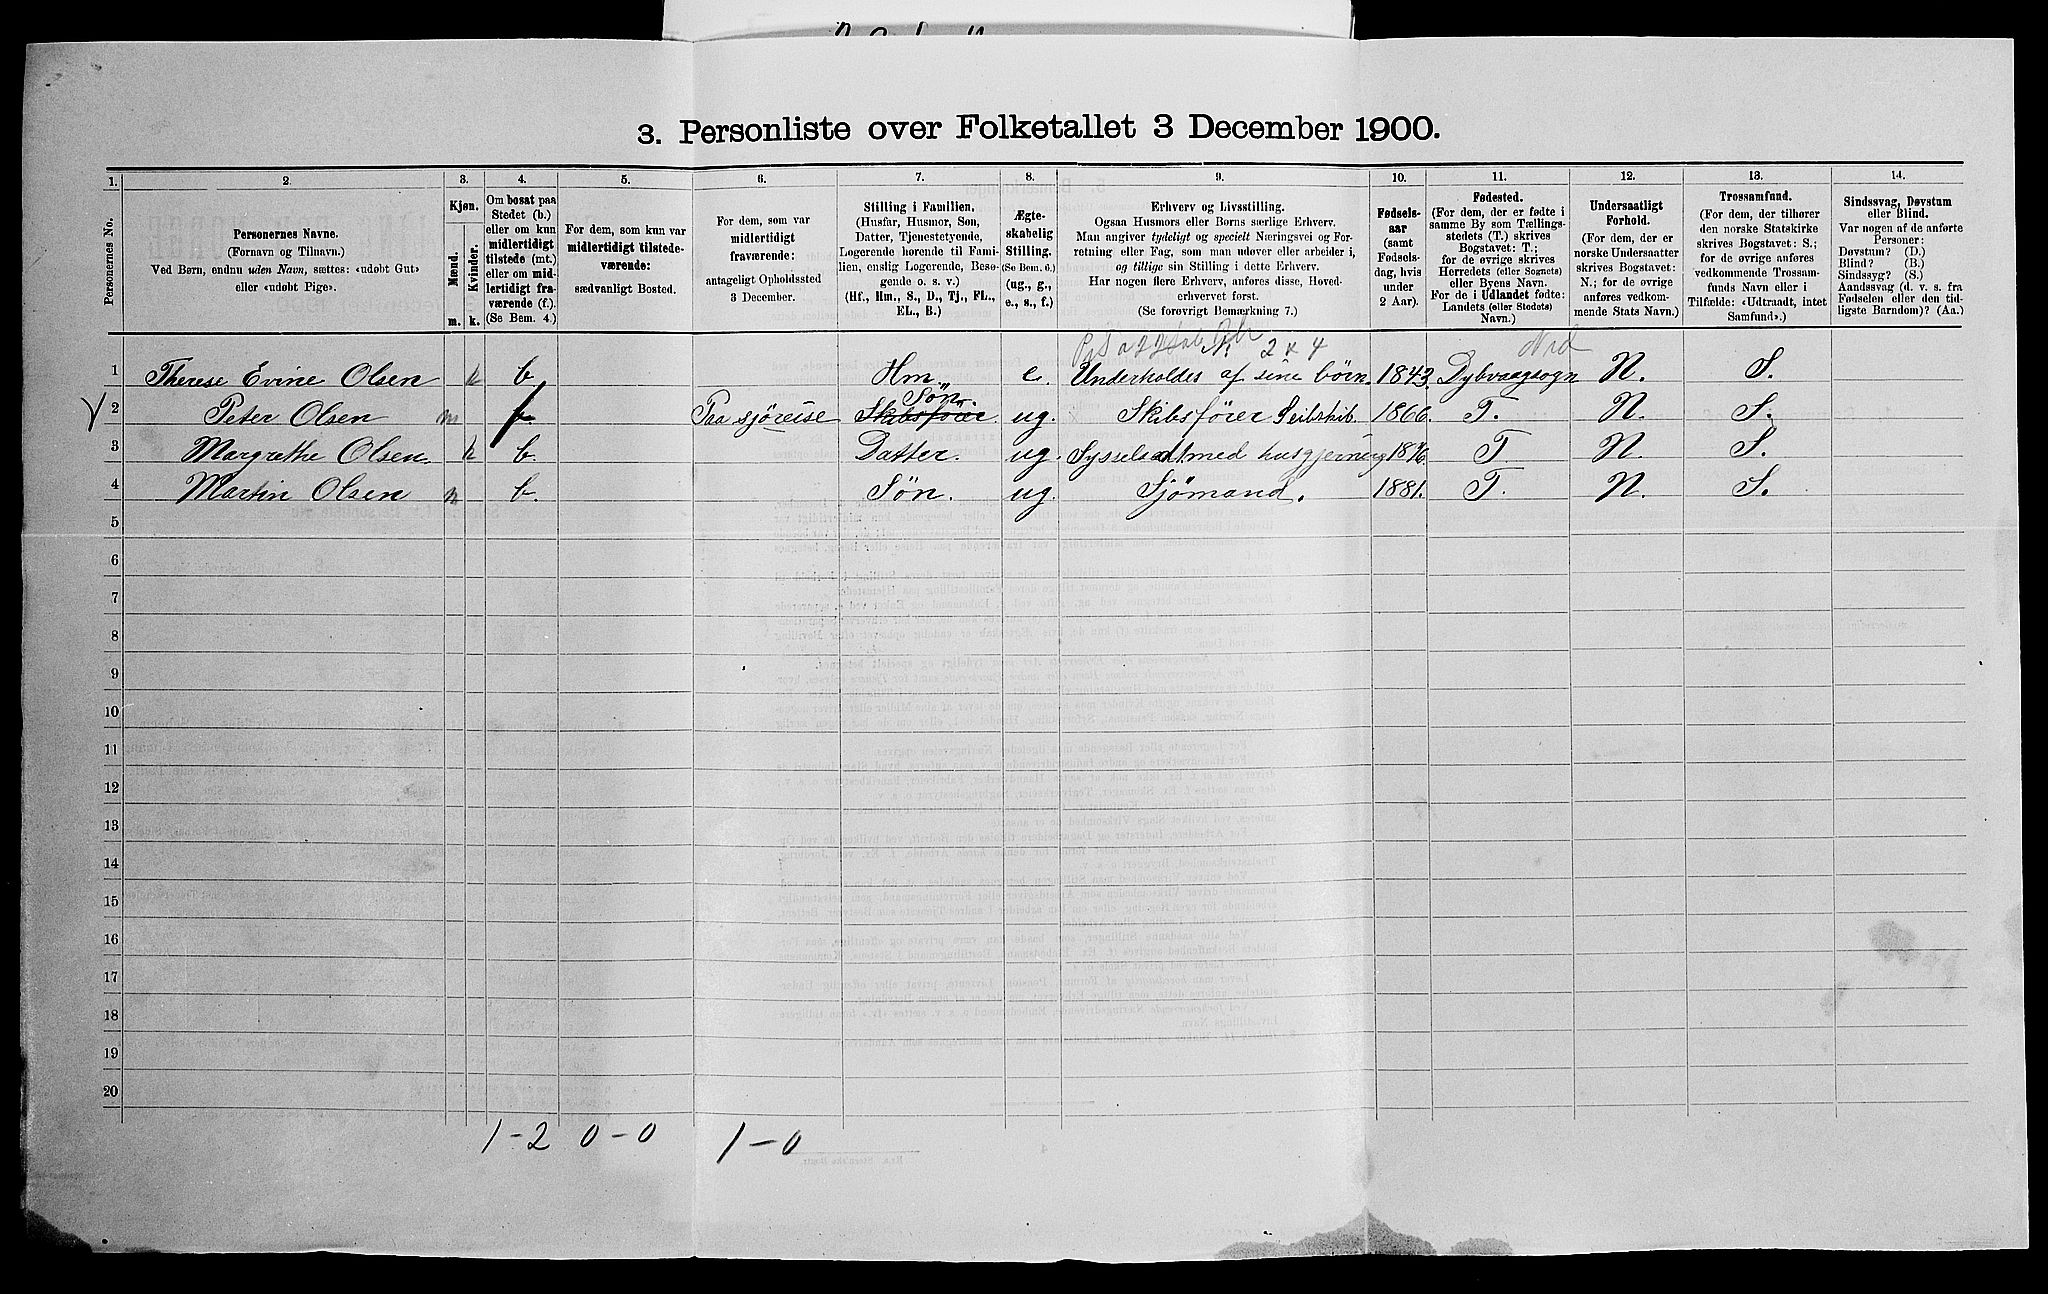 3. Personliste over Folketallet 3 December 1900.
1. 2. 3. 4. 5. 6. 7. 8. 9. 10. 11. 12. 13. 14.
Personernes No.
Personernes Navne.
(Fornavn og Tilnavn.)
Ved Børn, endnu uden Navn, sættes: «udøbt Gut»
eller «udøbt Pige».
Kjøn.
Mænd.
Kvinder.
m. k.
Om bosat paa
Stedet (b.)
eller om kun
midlertidigt
tilstede (mt.)
eller om mid-
lertidigt fra-
værende (f.).
(Se Bem. 4.)
For dem, som kun var
midlertidigt tilstede-
værende:
sædvanligt Bosted.
For dem, som var
midlertidigt
fraværende:
antageligt Opholdssted
3 December.
Stilling i Familien.
(Husfar, Husmor, Søn,
Datter, Tjenestetyende,
Logerende hørende til Fami-
lien, enslig Logerende, Besø-
gende o. s. v.)
(Hf., Hm., S., D., Tj., FL.,
EL., B.)
Ægte-
skabelig
Stilling.
(Se Bem. 6.)
(ug., g.,
e., s., f.)
Erhverv og Livsstilling.
Ogsaa Husmors eller Børns særlige Erhverv.
Man angiver tydeligt og specielt Næringsvei og For-
retning eller Fag, som man udøver eller arbeider i,
og tillige sin Stilling i dette Erhverv.
Har nogen flere Erhverv, anføres disse, Hoved-
erhvervet først.
(Se forøvrigt Bemærkning 7.)
Fødsels-
aar
(samt
Fødsels-
dag, hvis
under
2 Aar).
Fødested.
(For dem, der er føde i
samme By som Tællings-
stedets (T.) skrives
Bogstavet: T.;
for de øvrige skrives
Herredets (eller Sognets)
eller Byens Navn.
For de i Udlandet fødte:
Landets (eller Stedets)
Navn.)
Undersaatligt
Forhold.
(For dem, der er
norske Undersaatter
skrives Bogstavet:
N.; for de øvrige
anføres vedkom-
mende Stats Navn.)
Trossamfund.
(For dem, der tilhører
den norske Statskirke
skrives Bogstavet: S.;
for de øvrige anføres
vedkommende Trossam-
funds Navn eller i
Tilfælde: «Udtraadt, intet
Samfund».)
Sindssvag, Døvstum
eller Blind.
Var nogen af de anførte
Personer:
Døvstum? (D.)
Blind? (B.)
Sindssyg? (S.)
Aandssvag (d. v. s. fra
Fødselen eller den tid-
ligste Barndom)? (Aa.)
2 x 4
1 Therese Evine Olsen k b. Hm. e. Underholdes af sine børn. 1843. Dybvaagsogn N. S.
Søn.
2 Peter Olsen m f. Paa sjøreise Skibsfører ug. Skibsfører Seilskib. 1866. T. N. S.
3 Margrethe Olsen. k b. Datter. ug. Sysselsat med husgjerning 1876. T N. S.
4 Martin Olsen m b. Søn. ug. Sjømand. 1881. T. N. S.
5
6
7
8
9
10
11
12
13
14
15
16
17
18
19
20
1-2 0-0 1-0